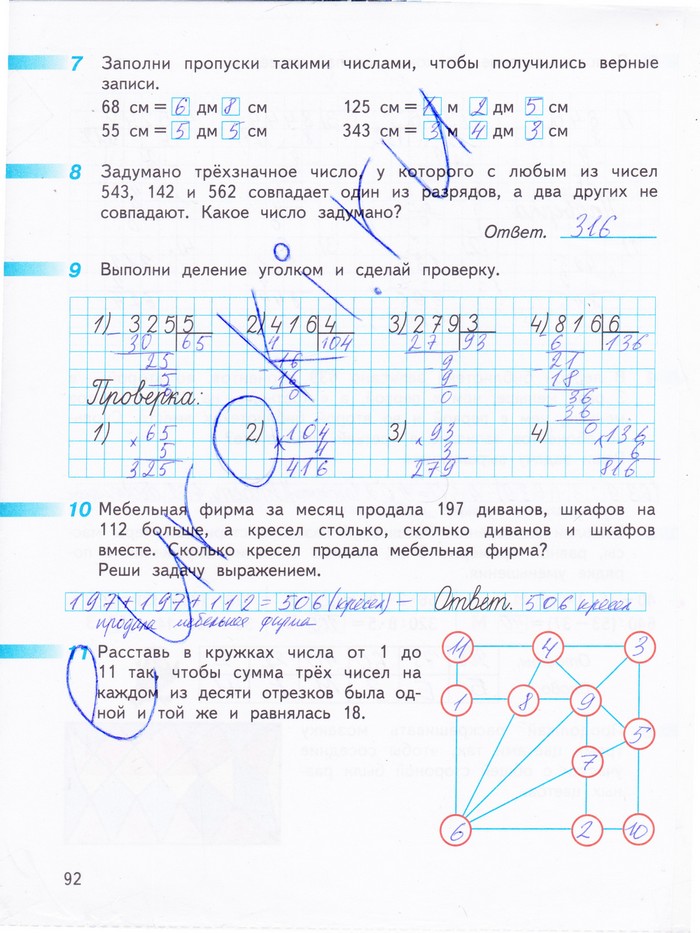 7 Заполни пропуски такими числами, чтобы получились верные
записи.
68 см = 6 дм 8 см 125 см = 1 м 2 дм 5 см
55 см = 5 дм 5 см 343 см = 3 м 4 дм 3 см
8 Задумано трёхзначное число, у которого с любым из чисел
543, 142 и 562 совпадает один из разрядов, а два других не
совпадают. Какое число задумано?
Ответ. 316
9 Выполни деление уголком и сделай проверку.
1) 325 5 2) 416 4 3) 279 3 4) 816 6
30 65 4 104 27 93 6 136
25 16 9 21
5 16 9 18
0 0 36
36
0
Проверка:
1) × 65 2) × 104 3) × 93 4) × 136
5 4 3 6
325 416 279 816
10 Мебельная фирма за месяц продала 197 диванов, шкафов на
112 больше, а кресел столько, сколько диванов и шкафов
вместе. Сколько кресел продала мебельная фирма?
Реши задачу выражением.
197+197+112=506 (кресел) – Ответ. 506 кресел
продала мебельная фирма
11 Расставь в кружках числа от 1 до
11 так, чтобы сумма трёх чисел на
каждом из десяти отрезков была од-
ной и той же и равнялась 18.
11 4 3
1 8 9
5
7
6 2 10
92